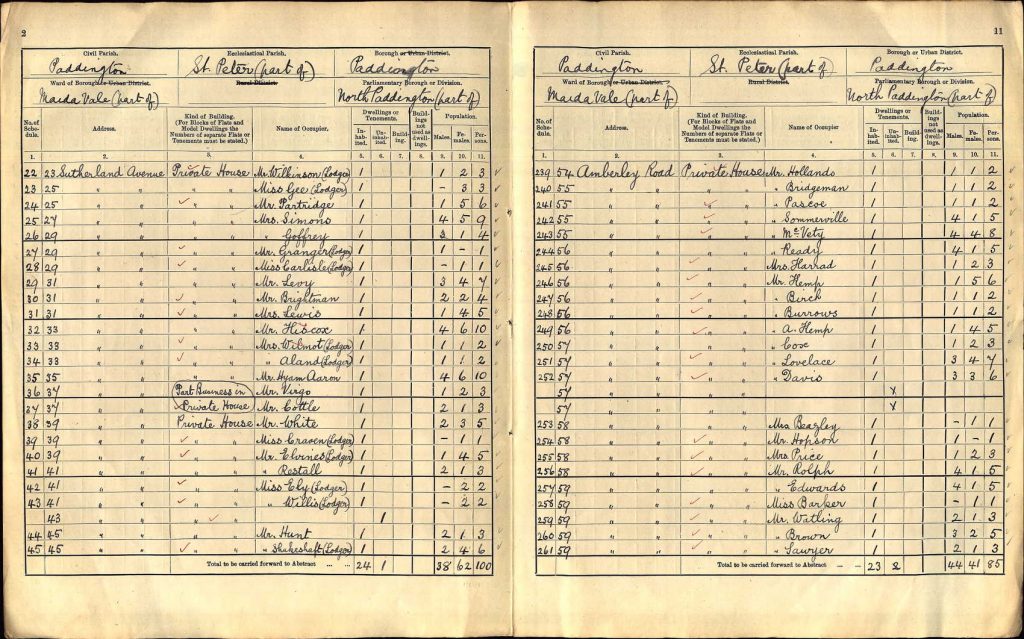 2
Civil Parish. Ecclesiastical Parish. Borough or Urban District.
Paddington St. Peter (part of) Paddington
Ward of Borough or Urban District. Rural District. Parliamentary Borough or Division.
Maida Vale (part of) North Paddington (part of)
No. of Schedule. Address. Kind of Building. (For Blocks of Flats and Model Dwellings the Numbers of separate Flats or Tenements must be stated.) Name of Occupier. Dwellings or Tenements. Inhabited. Uninhabited. Building. Buildings not used as dwellings. Population. Males. Females. Persons.
1. 2. 3. 4. 5. 6. 7. 8. 9. 10. 11.
22 23 Sutherland Avenue Private House Mr. Wilkinson (Lodger) 1 1 2 3
23 25 " " " " Miss Gee (Lodger) 1 - 3 3
24 25 " " " " Mr. Partridge 1 1 5 6
25 27 " " " " Mrs. Simons 1 4 5 9
26 29 " " " " " Goffrey 1 3 1 4
27 29 " " " " Mr. Granger (Lodger) 1 1 - 1
28 29 " " " " Miss Carlisle (Lodger) 1 - 1 1
29 31 " " " " Mr. Levy 1 3 4 7
30 31 " " " " Mr. Brightman 1 2 2 4
31 31 " " " " Mrs. Lewis 1 1 4 5
32 33 " " " " Mr. Hiscox 1 4 6 10
33 33 " " " " Mrs. Wilmot (Lodger) 1 1 1 2
34 33 " " " " " Aland (Lodger) 1 1 1 2
35 35 " " " " Mr. Hyam Aaron 1 4 6 10
36 37 " " Part Business in Mr. Virgo 1 1 2 3
37 37 " " Private House Mr. Cottle 1 2 1 3
38 39 " " Private House Mr. White 1 2 3 5
39 39 " " " " Miss Craven (Lodger) 1 - 1 1
40 39 " " " " Mr. Elvines (Lodger) 1 1 4 5
41 41 " " " " " Restall 1 2 1 3
42 41 " " " " Miss Ely (Lodger) 1 - 2 2
43 41 " " " " " Willis (Lodger) 1 - 2 2
43 " " " " 1
44 45 " " " " Mr. Hunt 1 2 1 3
45 45 " " " " " Shakeshaft (Lodger) 1 2 4 6
Total to be carried forward to Abstract 24 1 38 62 100
11
Civil Parish. Ecclesiastical Parish. Borough or Urban District.
Paddington St. Peter (part of) Paddington
Ward of Borough or Urban District. Rural District. Parliamentary Borough or Division.
Maida Vale (part of) North Paddington (part of)
No. of Schedule. Address. Kind of Building. (For Blocks of Flats and Model Dwellings the Numbers of separate Flats or Tenements must be stated.) Name of Occupier Dwellings or Tenements. Inhabited. Uninhabited. Building. Buildings not used as dwellings. Population. Males. Females. Persons.
1. 2. 3. 4. 5. 6. 7. 8. 9. 10. 11.
239 54 Amberley Road Private House Mr. Hollands 1 1 1 2
240 55 " " " " " Bridgeman 1 1 1 2
241 55 " " " " " Pascoe 1 1 1 2
242 55 " " " " " Sommerville 1 4 1 5
243 55 " " " " " McVety 1 4 4 8
244 56 " " " " " Ready 1 4 1 5
245 56 " " " " Mrs. Harrad 1 1 2 3
246 56 " " " " Mr. Hemp 1 1 5 6
247 56 " " " " " Birch 1 1 1 2
248 56 " " " " " Burrows 1 1 1 2
249 56 " " " " " A. Hemp 1 1 4 5
250 57 " " " " " Cox 1 1 2 3
251 57 " " " " " Lovelace 1 3 4 7
252 57 " " " " " Davis 1 3 3 6
57 " " " " x
57 " " " " x
253 58 " " " " Mrs Beagley 1 - 1 1
254 58 " " " " Mr. Hopson 1 1 - 1
255 58 " " " " Mrs Price 1 1 2 3
256 58 " " " " Mr. Rolph 1 4 1 5
257 59 " " " " " Edwards 1 4 1 5
258 59 " " " " Miss Barker 1 - 1 1
259 59 " " " " Mr. Watling 1 2 1 3
260 59 " " " " " Brown 1 3 2 5
261 59 " " " " " Sawyer 1 2 1 3
Total to be carried forward to Abstract 23 2 44 41 85